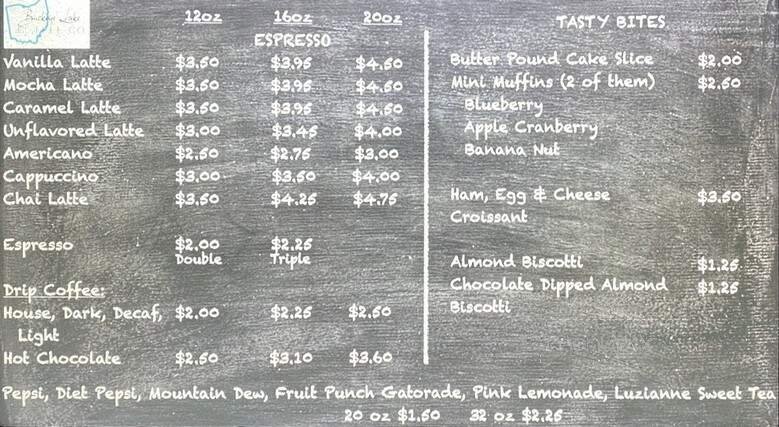 Buckeye Lake
COFFEE CO
12oz 16oz 20oz
ESPRESSO
Vanilla Latte $3.50 $3.95 $4.50
Mocha Latte $3.50 $3.95 $4.50
Caramel Latte $3.50 $3.95 $4.50
Unflavored Latte $3.00 $3.45 $4.00
Americano $2.50 $2.75 $3.00
Cappuccino $3.00 $3.50 $4.00
Chai Latte $3.50 $4.25 $4.75
Espresso $2.00 $2.25
Double Triple
Drip Coffee:
House, Dark, Decaf, $2.00 $2.25 $2.50
Light
Hot Chocolate $2.50 $3.10 $3.60
TASTY BITES
Butter Pound Cake Slice $2.00
Mini Muffins (2 of them) $2.50
Blueberry
Apple Cranberry
Banana Nut
Ham, Egg & Cheese $3.50
Croissant
Almond Biscotti $1.25
Chocolate Dipped Almond $1.25
Biscotti
Pepsi, Diet Pepsi, Mountain Dew, Fruit Punch Gatorade, Pink Lemonade, Luzianne Sweet Tea
20 oz $1.50 32 oz $2.25